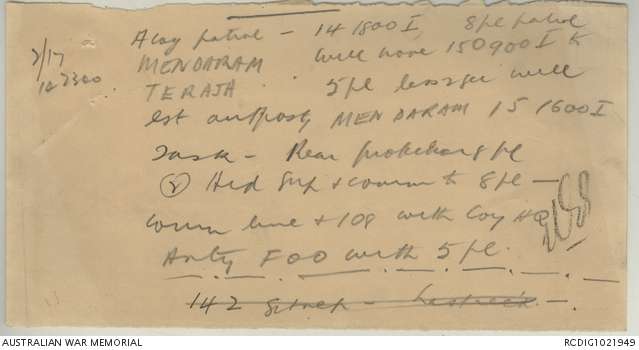 A Coy patrol - 14 1800 I, 8 pl patrol
2/17 MENDARAM will move 150900 I to
142300 TERAJA 5 pl less sec will
est outpost MENDARAM 15 1600 I
Task - Rear protection 8 pl
(2) Hd Sup & comm to 8 pl -
comm line & 108 with Coy HQ
Arty FOO with 5 pl.
142 Sitrep -
AUSTRALIAN WAR MEMORIAL
RCDIG1021949